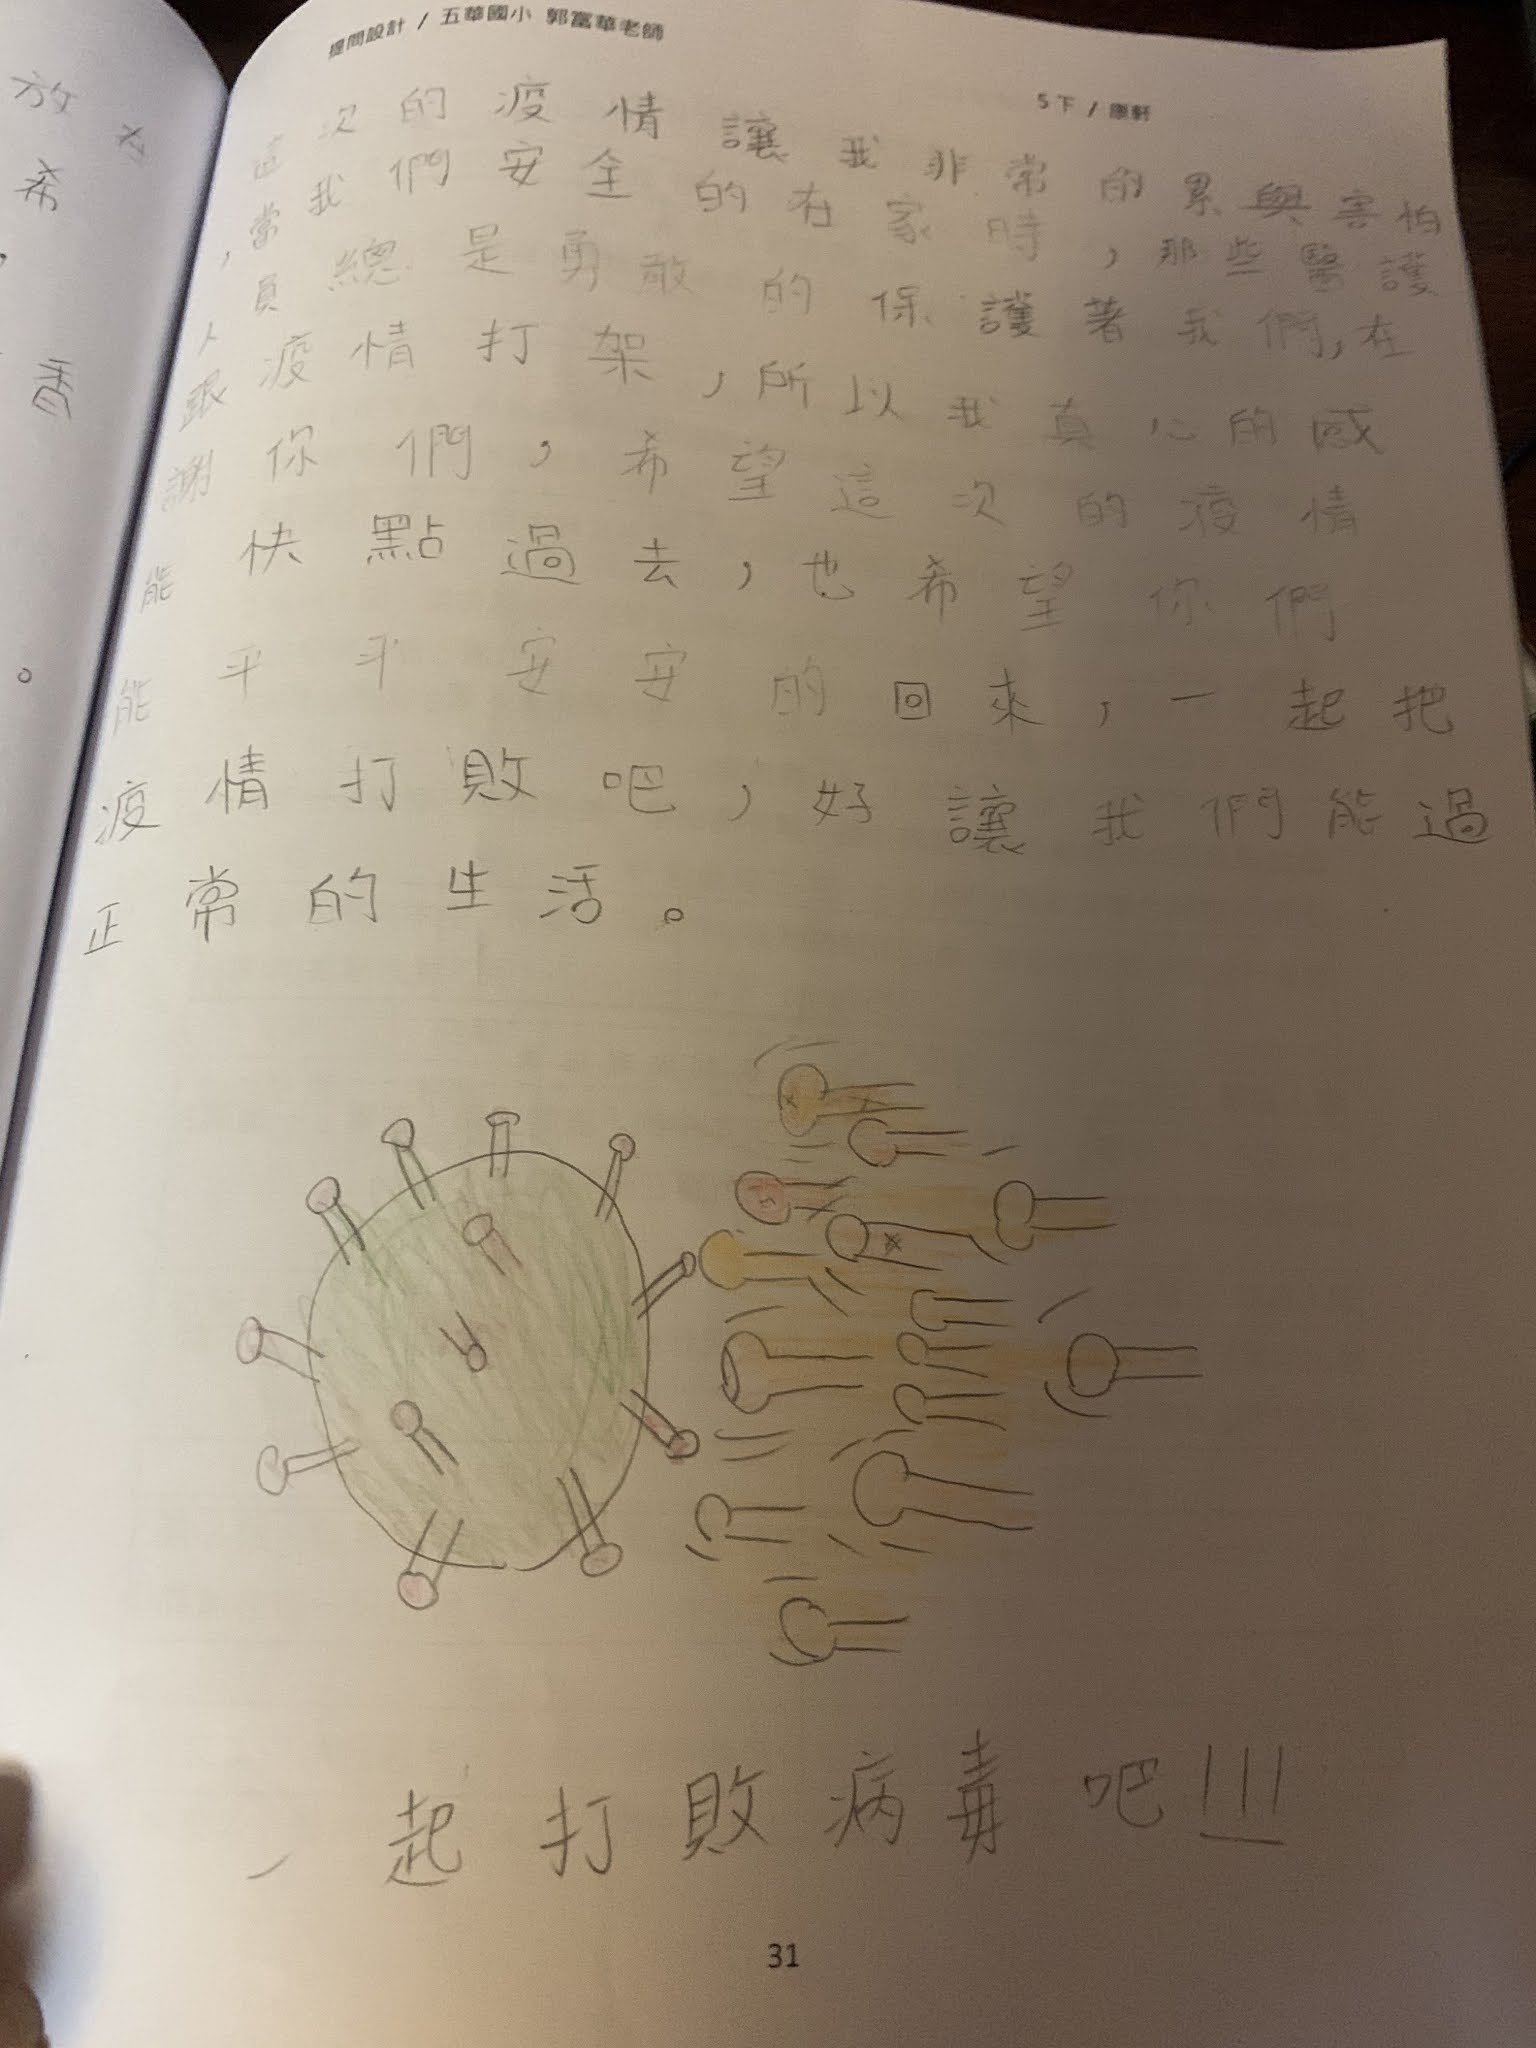 提問設計 / 五華國小 郭富華老師
5下 / 康軒
這次的疫情讓我非常的累與害怕
,當我們安全的在家時,那些醫護
人員總是勇敢的保護著我們,在
跟疫情打架,所以我真心的感
謝你們,希望這次的疫情
能快點過去,也希望你們
能平平安安的回來,一起把
疫情打敗吧,好讓我們能過
正常的生活。
一起打敗病毒吧!!!
31
放
希
香
。